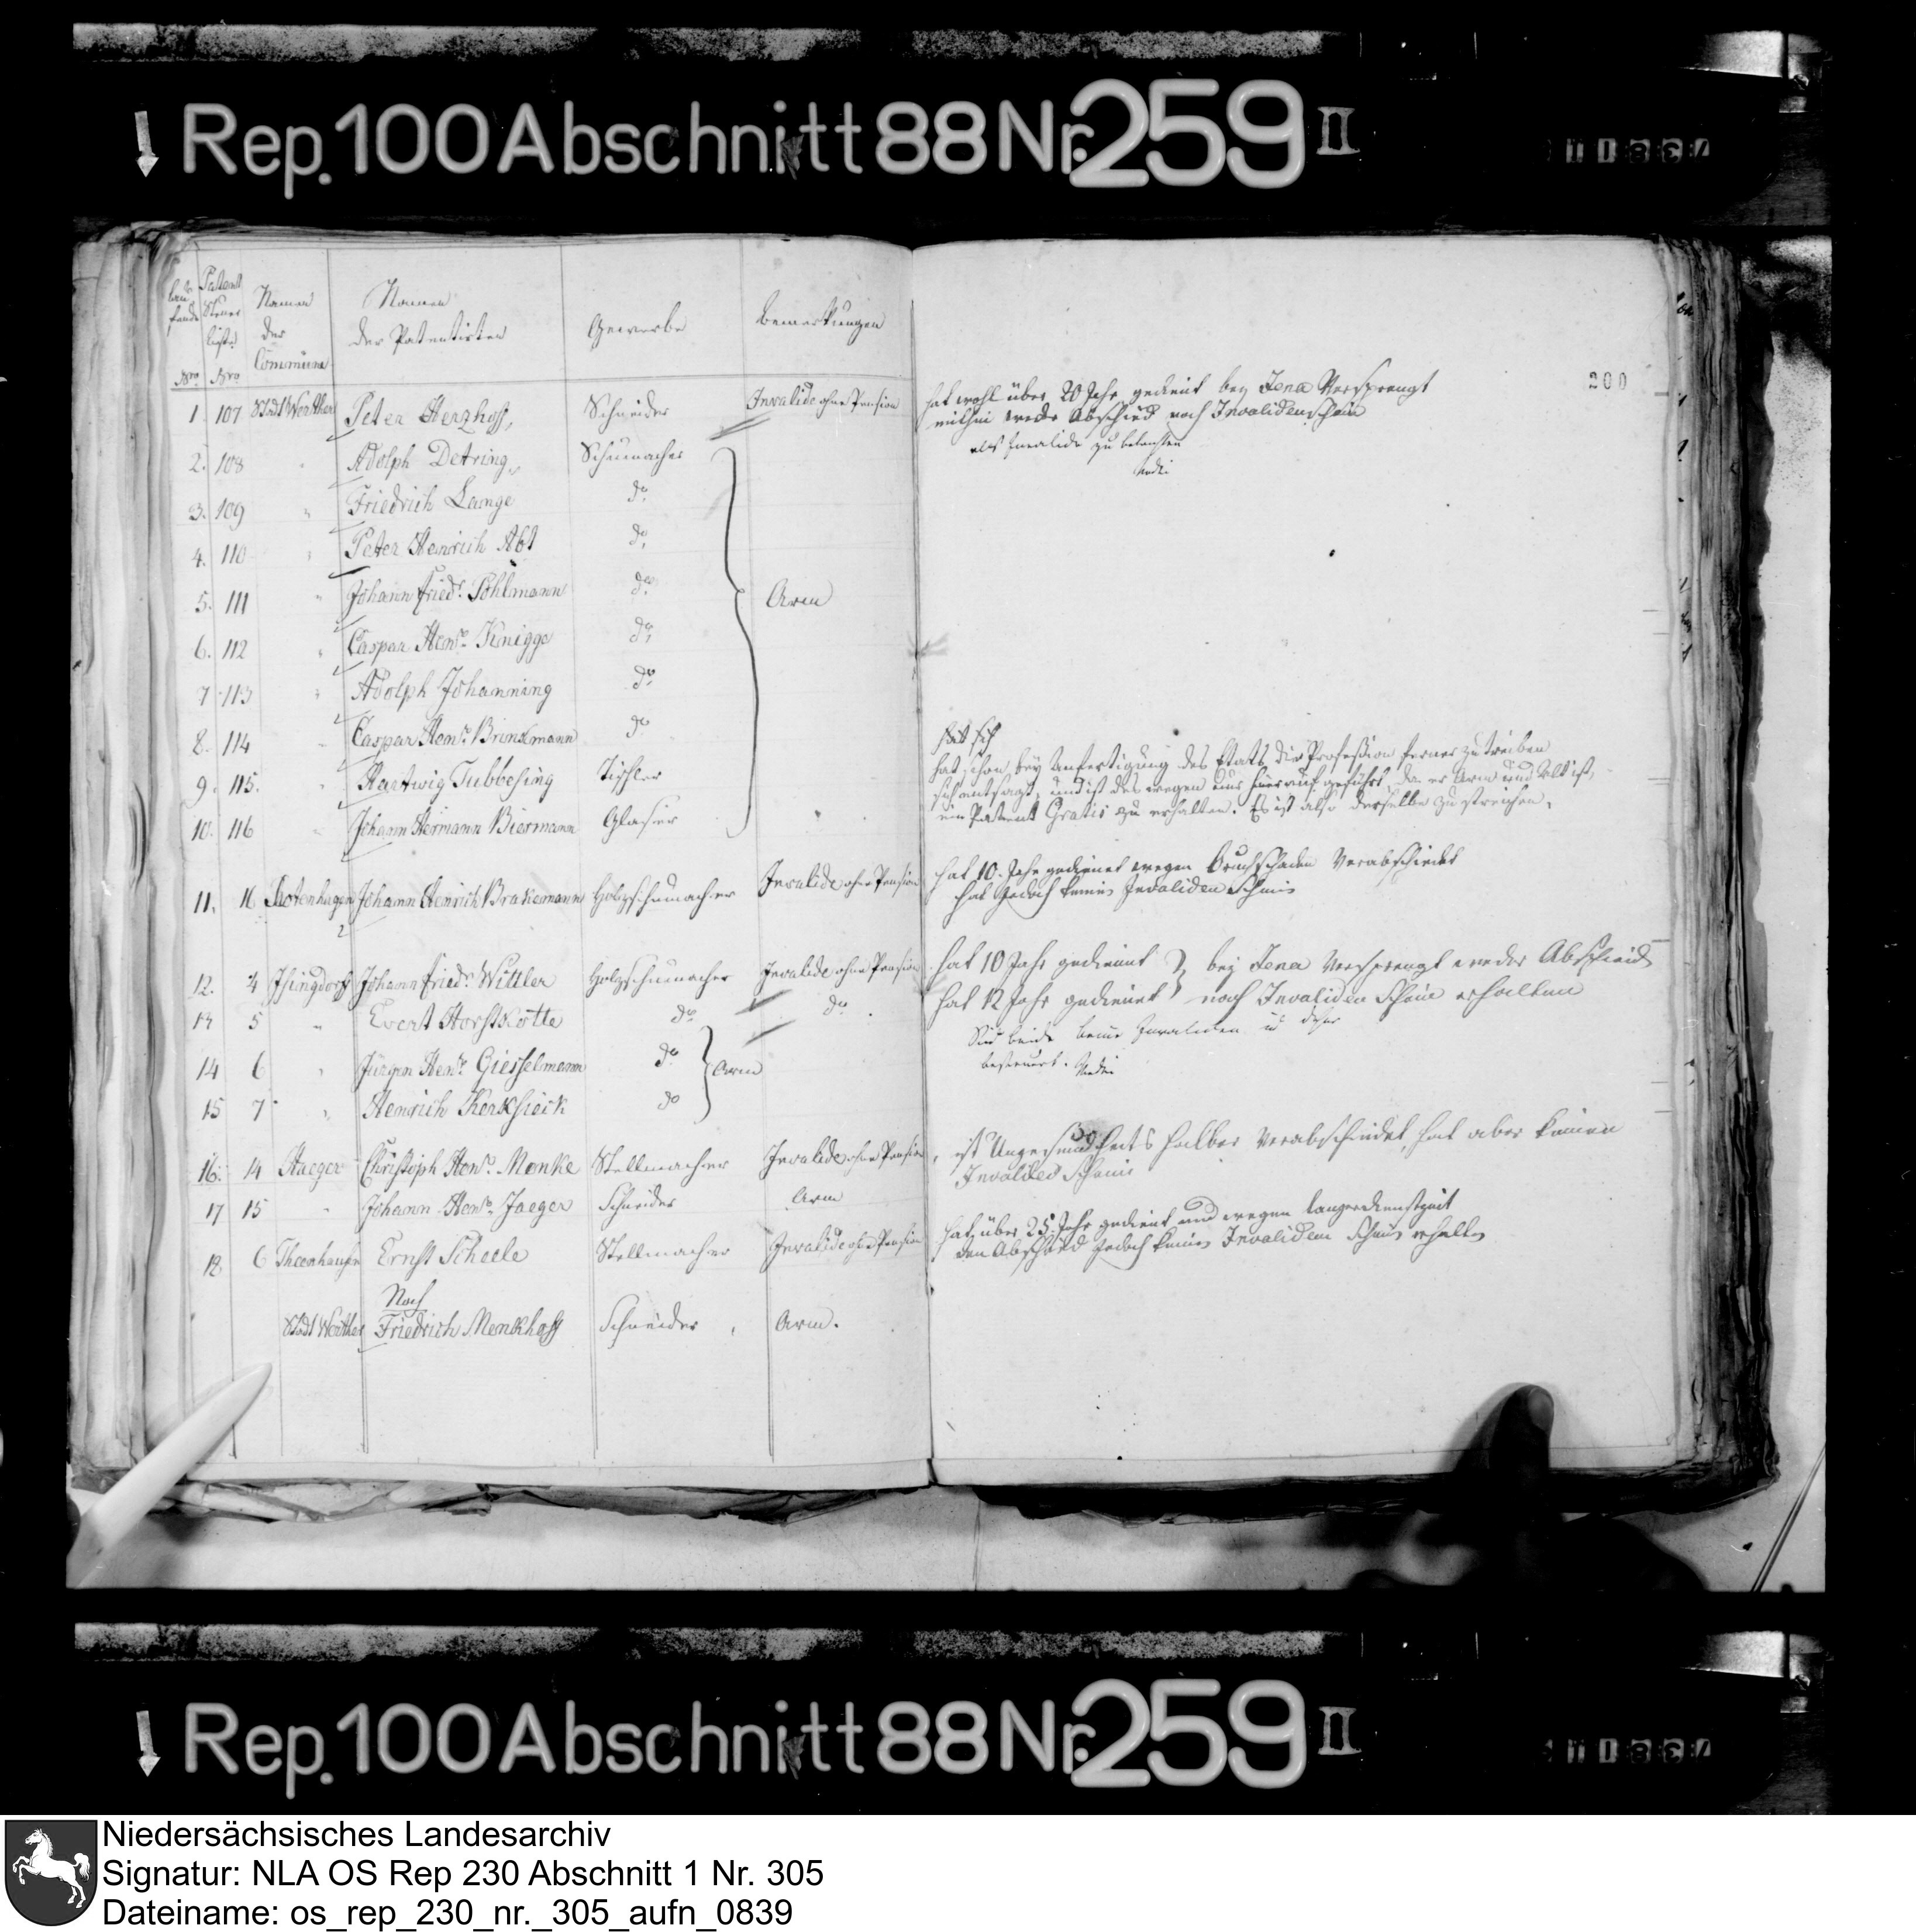 Rep. 100 Abschnitt 88 Nr. 259 II
200
laufende Nro
Patent Steuer liste Nro
Namen der Commüne
Namen der Patentisten
Gewerbe
Bemerkungen
1. 107 Stadt Werther Peter Herzhoff, Schneider Invalide ohne Pension
hat wohl über 20 Jahr gedient bey Jena Versprengt
mithin weder Abschied noch Invalidenschein
als Invalide zu
2. 108 " Adolph Detring, Schumacher
3. 109 " Friedrich Lange do
4. 110 " Peter Henrich Abt do
5. 111 " Johann Friedr. Pohlmann do Arm
6. 112 " Caspar Henr. Knigge do
7 113 " Adolph Johanning do
8. 114 " Caspar Henr. Brinkmann do
9. 115. " Hartwig Tubbesing Tischler
hat sich
hat schon bey Anfertigung des Etats die Profession ferner zu treiben
sich entsagt, und ist deswegen nur hierauf geführt, da er Arm und Alt ist,
ein Patent Gratis zu erhalten. Es ist also derselbe zu streichen.
10. 116 " Johann Hermann Biermann Glaser
11. 16 Rotenhagen Johann Henrich Brakemann Holzschumacher Invalide ohne Pension
hat 10. Jahr gedienet wegen Bruchschaden Verabschiedet
hat Jedoch keinen Invaliden Schein
12. 4 Isingdorf Johann Friedr. Wittler Holzschumacher Invalide ohne Pension
hat 10 Jahr gedienet } bey Jena Versprengt weder Abschied
13 5 " Evert Horstkotte do do.
hat 12 Jahr gedienet } noch Invaliden Schein erhalten
Sind beide keine Invaliden u daher
besteuert.
14 6 " Jürgen Henr. Giesselmann do Arm
15 7 " Henrich Kerksieck do
16. 14 Haeger Christoph Henr. Menke Stellmacher Invalide ohne Pension
ist Ungesundheits halber Verabschiedet, hat aber keinen
Invaliden Schein
17 15 " Johann Henr. Jaeger Schneider Arm
18 6 Theenhausen Ernst Scheele Stellmacher Invalide ohne Pension
hat über 25. Jahr gedient und wegen langer dienstzeit
den Abschied Jedoch keinen Invaliden Schein erhalten
Noch
Stadt Werther Friedrich Menkhoff Schneider Arm.
Rep. 100 Abschnitt 88 Nr. 259 II
Niedersächsisches Landesarchiv
Signatur: NLA OS Rep 230 Abschnitt 1 Nr. 305
Dateiname: os_rep_230_nr._305_aufn_0839